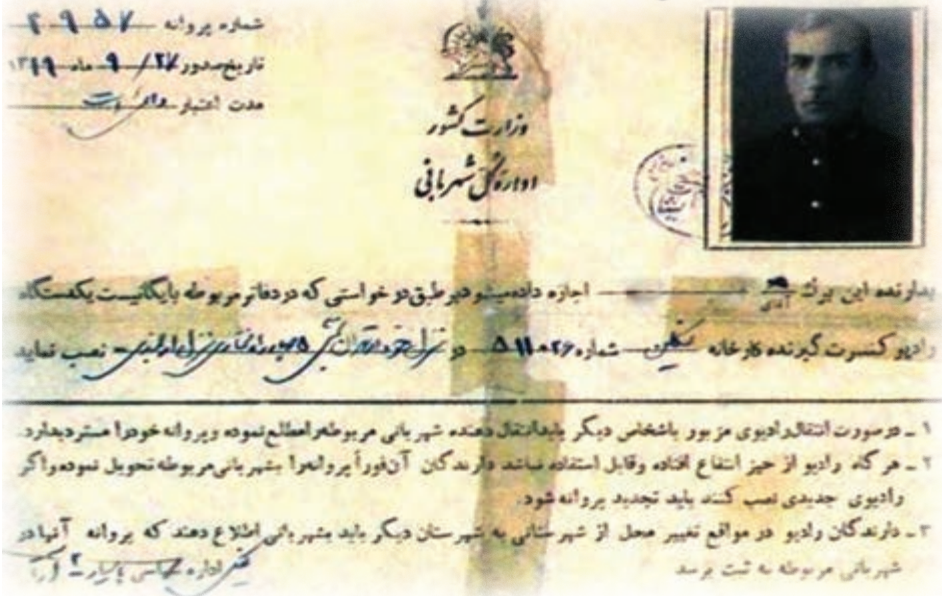 شماره پروانه ۲۹۵۷
تاریخ صدور ۲۷/ ۹ ماه ۱۳۱۹
مدت اعتبار
وزارت کشور
اداره کل شهربانی
بدارنده این برگ آقای اجازه داده میشود بر طبق درخواستی که در دفاتر مربوطه بایگانیست یکدستگاه
رادیو کنسرت گیرنده کارخانه شماره ۵۱۱۰۲۶ در نصب نماید
۱ - در صورت انتقال رادیوی مزبور باشخاص دیگر باید انتقال دهنده شهربانی مربوطه را مطلع نموده و پروانه خود را مسترد بدارد.
۲ - هر گاه رادیو از حیز انتفاع افتاده وقابل استفاده نباشد دارندگان آن فوراً پروانه را بشهربانی مربوطه تحویل نموده و اگر
رادیوی جدیدی نصب کنند باید تجدید پروانه شود.
۳ - دارندگان رادیو در مواقع تغییر محل از شهرستانی به شهرستان دیگر باید بشهربانی اطلاع دهند که پروانه آنها در
شهربانی مربوطه به ثبت برسد
اداره سیاسی